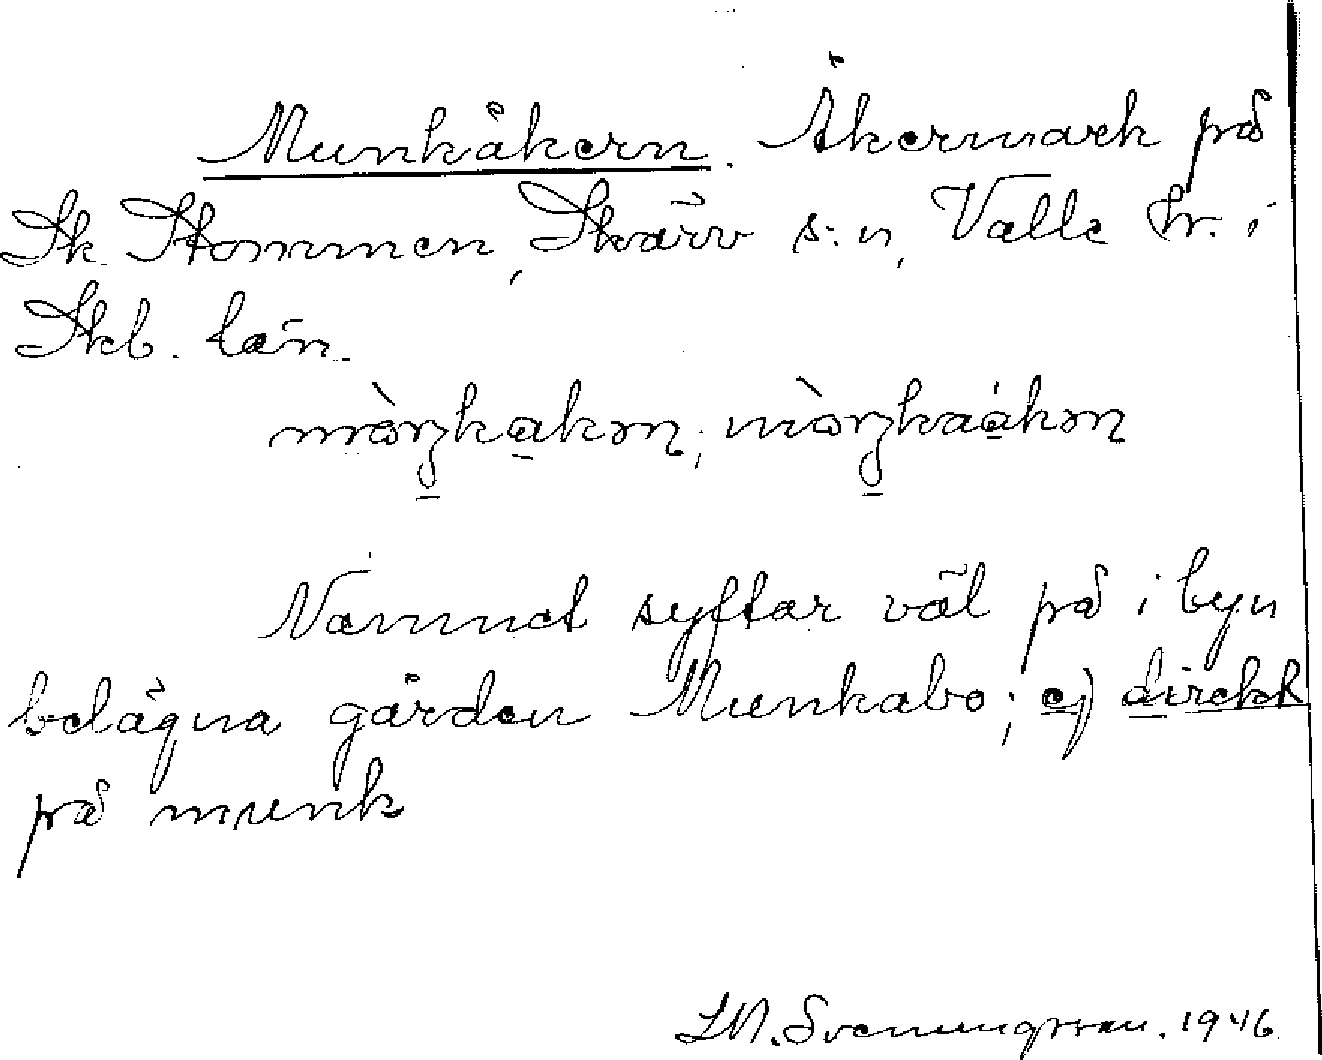 Munkåkern. Åkermark på
Sk. Stommen, Skärv s:n, Valle hr. i
Skb. län.
Namnet syftar väl på i byn
belägna gården Munkabo; ej direkt
på munk
Svenungsson. 1946